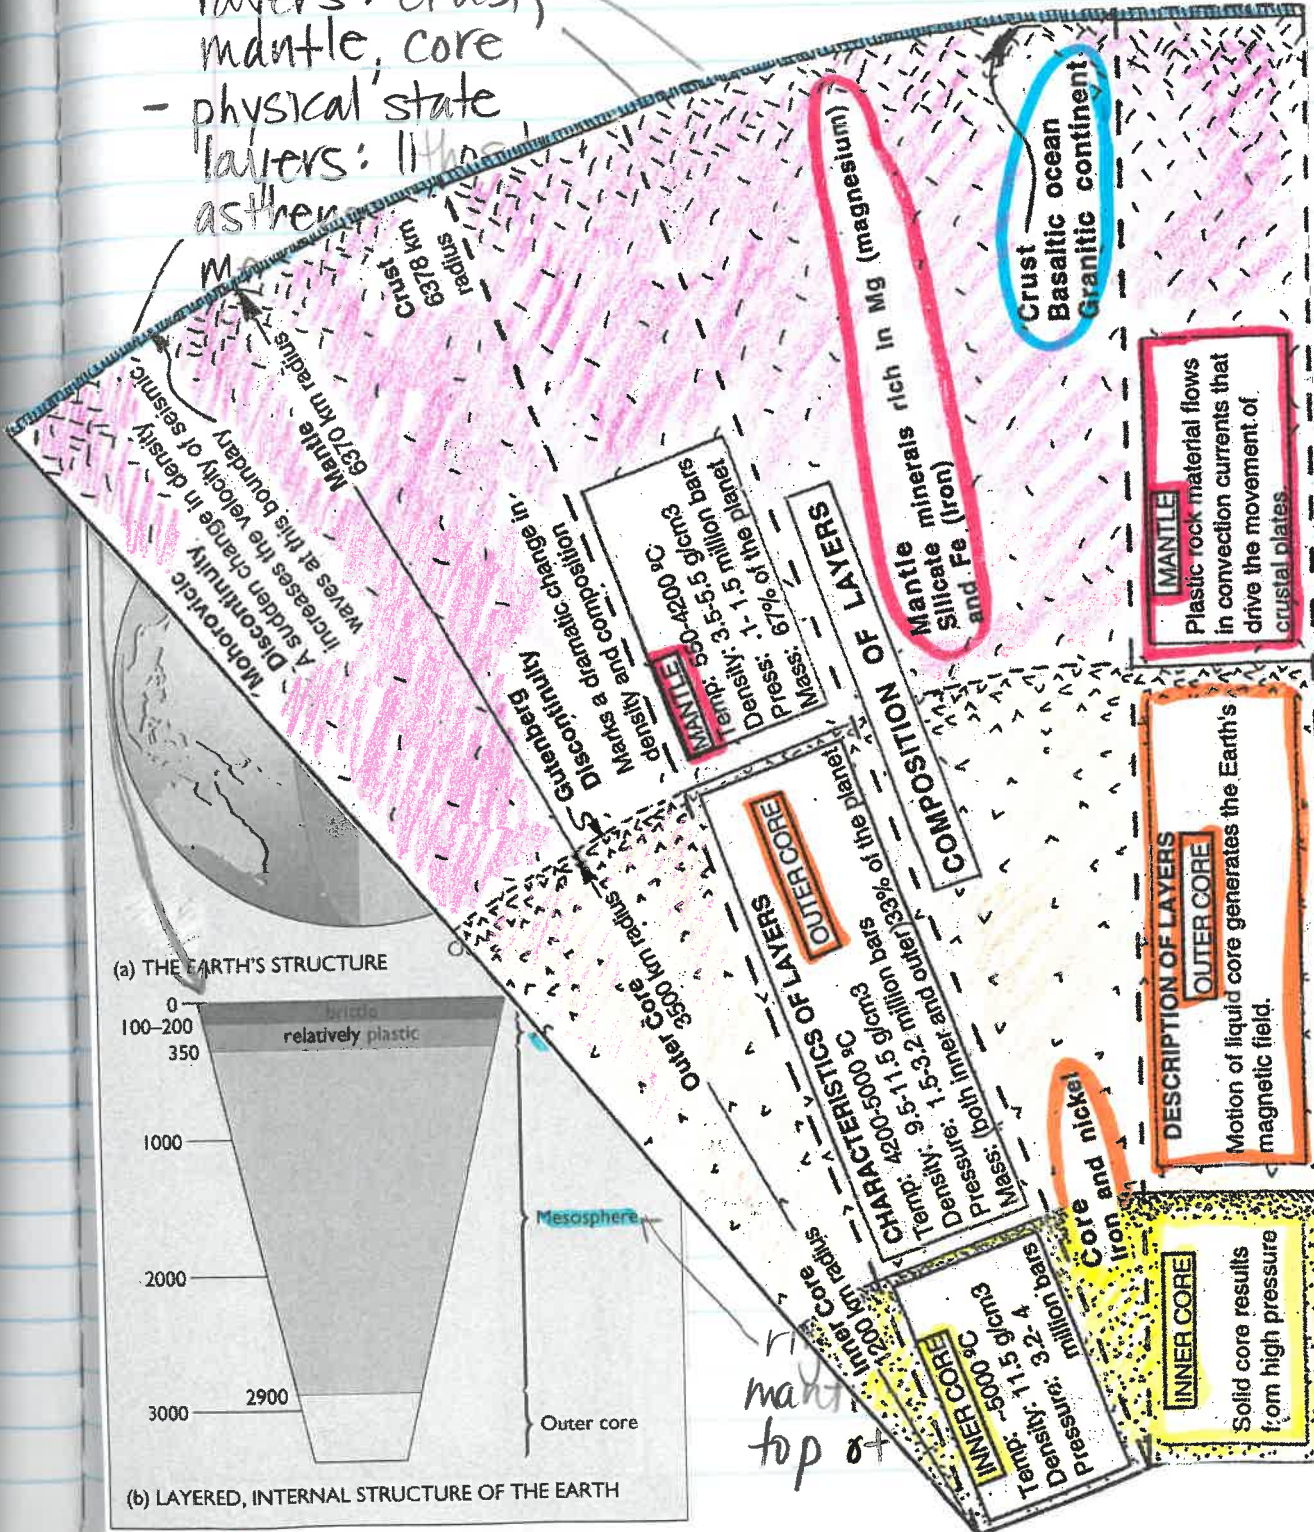 layers: crust,
mantle, core
- physical state
layers: lithos
asthen
"Mohorovicic
Discontinuity
A sudden change in density
increases the velocity of seismic
waves at this boundary
Mantle
6370 km radius
Crust
6378 km
radius
Gutenberg
Discontinuity
Marks a dramatic change in
density and composition
MANTLE
Temp: 550-4200 ºC
Density: 3.5-5.5 g/cm3
Press: .1- 1.5 million bars
Mass: 67% of the planet
COMPOSITION OF LAYERS
Mantle
Silicate minerals rich in Mg (magnesium)
and Fe (Iron)
Crust
Basaltic ocean
Granitic continent
MANTLE
Plastic rock material flows
in convection currents that
drive the movement of
crustal plates.
Outer Core
3500 km radius
CHARACTERISTICS OF LAYERS
OUTER CORE
Temp: 4200-5000 ºC
Density: 9.5-11.5 g/cm3
Pressure: 1.5-3.2 million bars
Mass: (both inner and outer)33% of the planet
DESCRIPTION OF LAYERS
OUTER CORE
Motion of liquid core generates the Earth's
magnetic field.
Core
Iron and nickel
Inner Core
1200 km radius
INNER CORE
Temp: ~5000 ºC
Density: 11.5 g/cm3
Pressure: 3.2- 4
million bars
INNER CORE
Solid core results
from high pressure
(a) THE EARTH'S STRUCTURE
0
brittle
100–200
relatively plastic
350
1000
Mesosphere
2000
2900
3000
Outer core
(b) LAYERED, INTERNAL STRUCTURE OF THE EARTH
top of